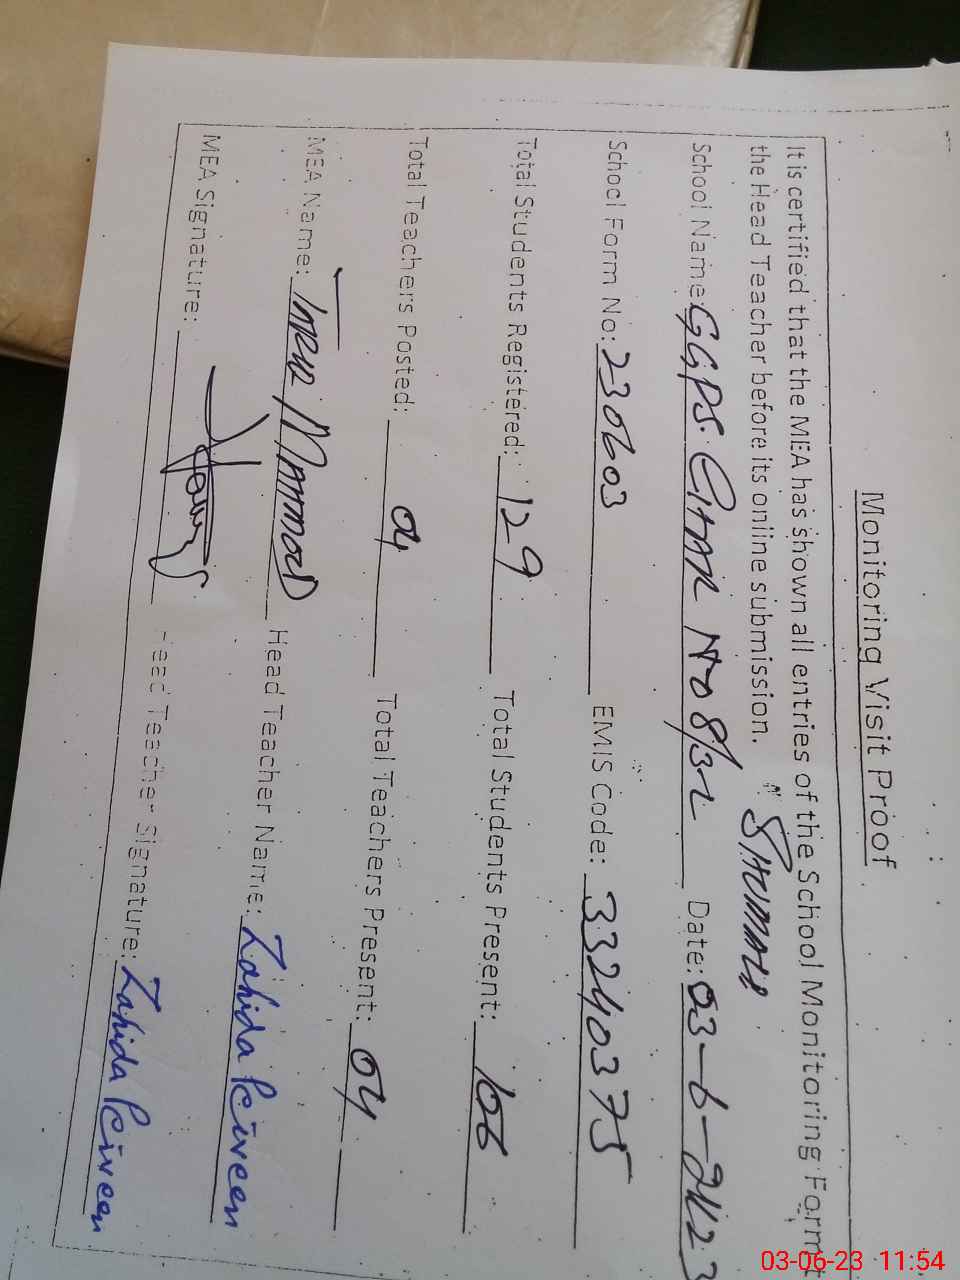 Monitoring Visit Proof
It is certified that the MEA has shown all entries of the School Monitoring Form t
the Head Teacher before its online submission.
School Name: GGPS. Chak No 8/32 Date: 03-6-2023
School Form No: 230603 EMIS Code: 33240375
Total Students Registered: 129 Total Students Present: 106
Total Teachers Posted: 04 Total Teachers Present: 04
MEA Name: Head Teacher Name: Zahida Perveen
MEA Signature: Head Teacher Signature: Zahida Perveen
03-06-23 11:54